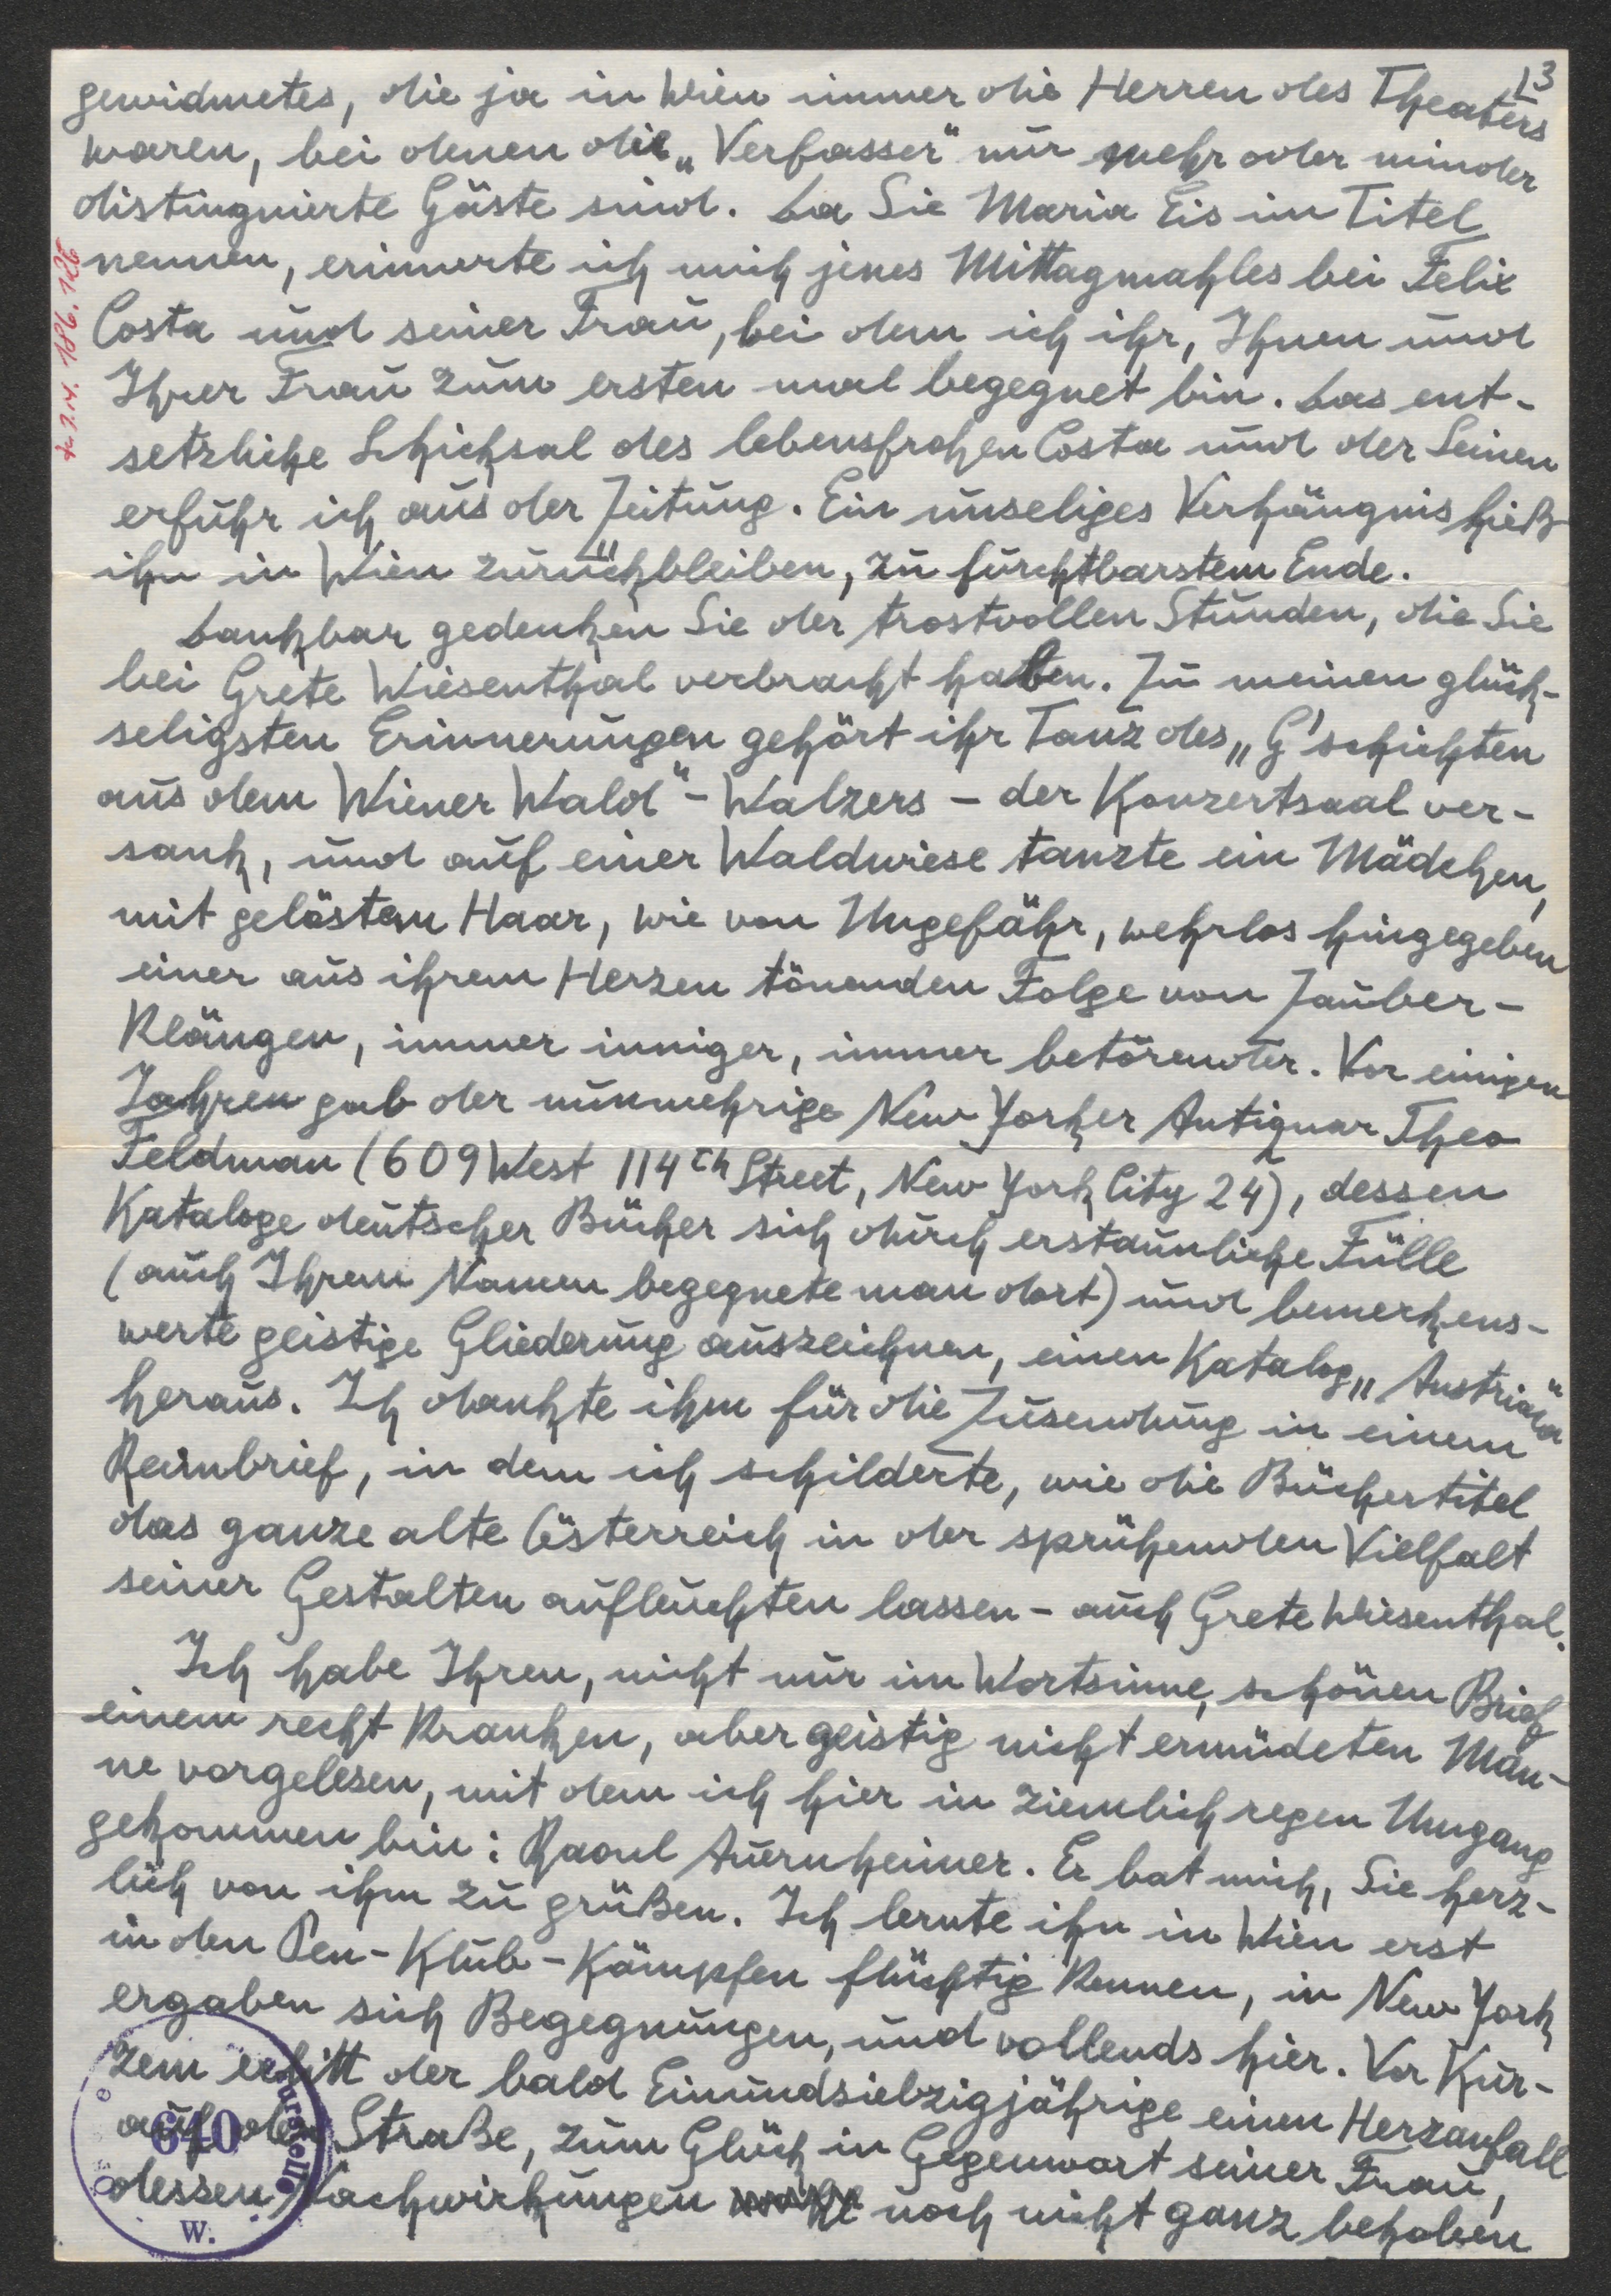 13
gewidmetes, die ja in Wien immer die Herren des Theaters
waren, bei denen die „Verfasser" nur mehr oder minder
distinguierte Gäste sind. Da Sie Maria Eis im Titel
nennen, erinnerte ich mich jenes Mittagmahles bei Felix
Costa und seiner Frau, bei dem ich ihr, Ihnen und
Ihrer Frau zum ersten mal begegnet bin. Das ent-
setzliche Schicksal des lebensfrohen Costa und der Seinen
erfuhr ich aus der Zeitung. Ein unseliges Verhängnis hieß
ihn in Wien zurückbleiben, zu furchtbarstem Ende.
Dankbar gedenken Sie der trostvollen Stunden, die Sie
bei Grete Wiesenthal verbracht haben. Zu meinen glück-
seligsten Erinnerungen gehört ihr Tanz des „G'schichten
aus dem Wiener Wald"-Walzers – der Konzertsaal ver-
sank, und auf einer Waldwiese tanzte ein Mädchen,
mit gelöstem Haar, wie von Ungefähr, wehrlos hingegeben
einer aus ihrem Herzen tönenden Folge von Zauber-
Klängen, immer inniger, immer betörender. Vor einigen
Jahren gab der nunmehrige New Yorker Antiquar Theo
Feldman (609 West 114th Street, New York City 24), dessen
Kataloge deutscher Bücher sich durch erstaunliche Fülle
(auch Ihrem Namen begegnete man dort) und bemerkens-
werte geistige Gliederung auszeichnen, einen Katalog „Austriaca"
heraus. Ich dankte ihm für die Zusendung in einem
Reimbrief, in dem ich schilderte, wie die Büchertitel
das ganze alte Österreich in der sprühenden Vielfalt
seiner Gestalten aufleuchten lassen – auch Grete Wiesenthal.
Ich habe Ihren, nicht nur im Wortsinne, schönen Brief
einem recht kranken, aber geistig nicht ermüdeten Man-
ne vorgelesen, mit dem ich hier in ziemlich regen Umgang
gekommen bin: Raoul Auernheimer. Er bat mich, Sie herz-
lich von ihm zu grüßen. Ich lernte ihn in Wien erst
in den Pen-Klub-Kämpfen flüchtig kennen, in New York
ergaben sich Begegnungen, und vollends hier. Vor Kur-
zem erlitt der bald Einundsiebzigjährige einen Herzanfall
auf der Straße, zum Glück in Gegenwart seiner Frau,
dessen Nachwirkungen noch nicht ganz behoben
640
W.